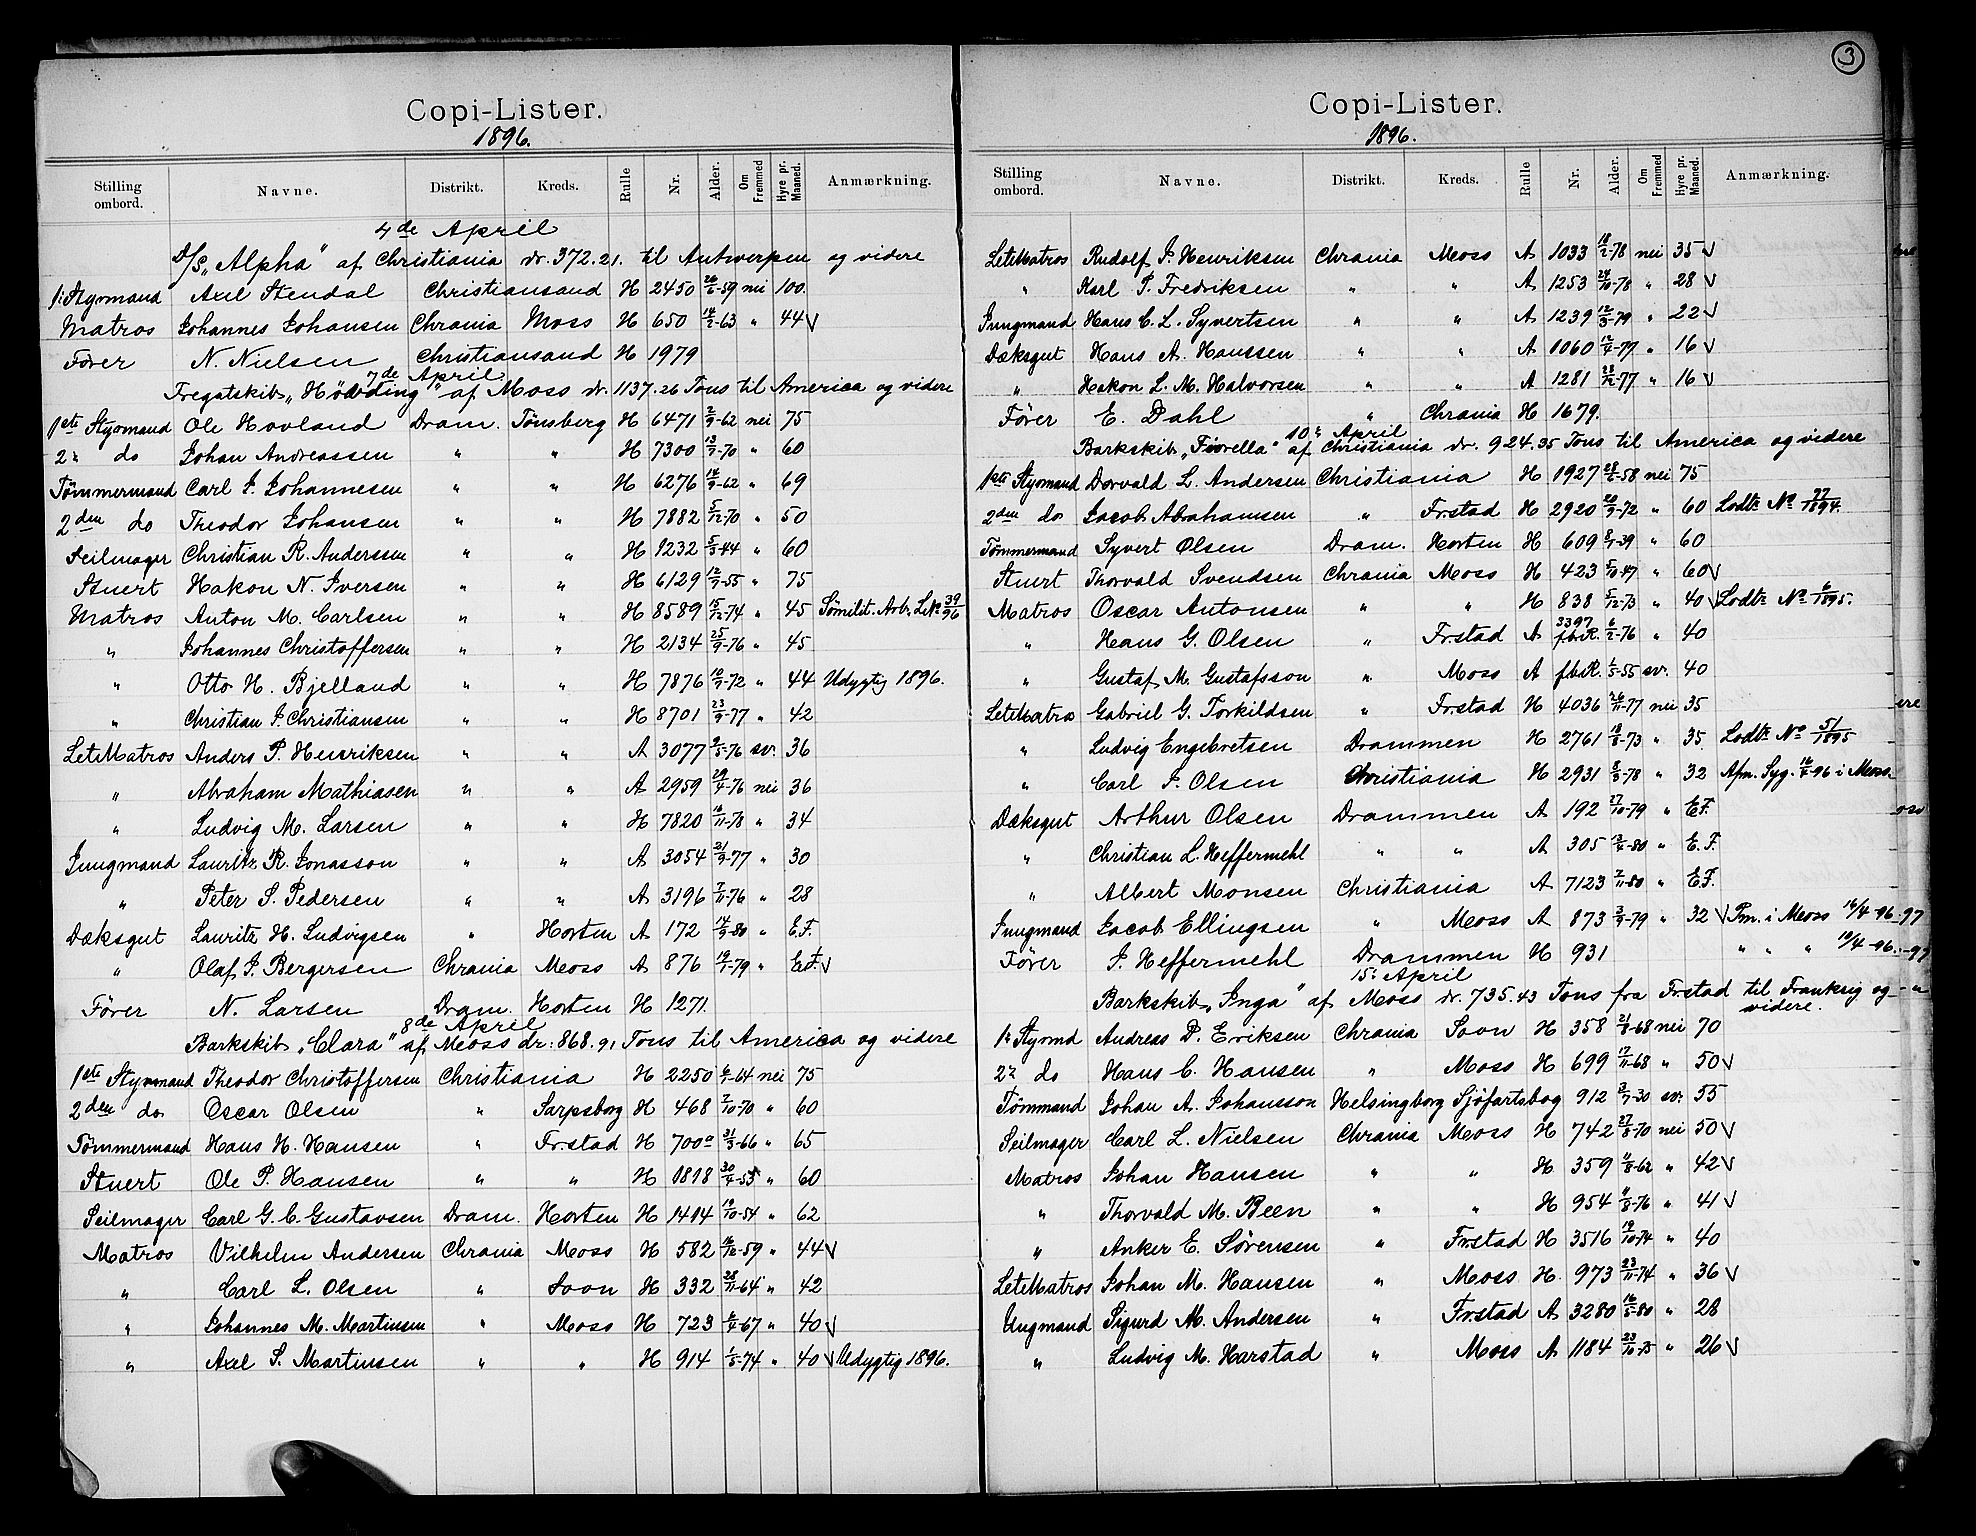 Copi-Lister.
1896.
Stilling ombord. Navne. Distrikt. Kreds. Rulle Nr. Alder. Om Fremmed Hyre pr. Maaned. Anmærkning.
4de April
D/S „Alpha" af Christiania dr. 372.21. til Antwerpen og videre
1: Styrmand Axel Stendal Christiansand H 2450 26/6-59 nei 100.
Matros Johannes Johansen Chrania Moss H 650 14/2-63 " 44 √
Fører N. Nielsen Christiansand H 1979
7de April
Fregatskib „Hövding" af Moss dr. 1137.26 Tons til America og videre
1ste Styrmand Ole Hovland Dram. Tønsberg H 6471 2/9-62 nei 75
2: do Johan Andreassen " " H 7300 13/7-70 " 60
Tømmermand Carl J. Johannesen " " H 6276 14/9-62 " 69
2den do Theodor Johansen " " H 7882 5/12-70 " 50
Seilmager Christian R. Anderssen " " H 1232 5/3-44 " 60
Stuert Hakon N. Iversen " " H 6129 12/7-55 " 75
Matros Anton M. Carlsen " " H 8589 15/12-74 " 45 Sömilit. Arb. 39/96
" Johannes Christoffersen " " H 2134 25/9-76 " 45
" Otto H. Bjelland " " H 7876 10/7-72 " 44 Udygtig 1896.
" Christian J. Christiansen " " H 8701 23/9-77 " 42
LetMatros Anders P. Henriksen " " A 3077 9/5-76 sv. 36
" Abraham Mathiasen " " A 2959 29/4-76 nei 36
" Ludvig M. Larsen " " H 7820 16/11-78 " 34
Jungmand Lauritz R. Jonasson " " A 3054 21/9-77 " 30
" Peter S. Pedersen " " A 3196 7/11-76 " 28
Dæksgut Lauritz H. Ludvigsen " Horten A 172 14/9-80 " E.F.
" Olaf J. Bergersen Chrania Moss A 876 19/1-79 " E.F. √
Fører N. Larsen Dram. Horten H 1271.
8de April
Barkskib „Clara" af Moss dr: 868.91 Tons til America og videre
1ste Styrmand Theodor Christoffersen Christiania H 2250 6/1-64 nei 75
2den do. Oscar Olsen " Sarpsborg H 468 7/10-70 " 60
Tømmermand Hans H. Hansen " Fr.stad H 700 31/3-66 " 65
Stuert Ole P. Hansen " " H 1818 30/4-53 " 60
Seilmager Carl G. C. Gustavsen Dram. Horten H 1414 19/10-54 " 62
Matros Vilhelm Andersen Chrania Moss H 582 16/12-59 " 44 √
" Carl L. Olsen " Soon H 332 28/11-64 " 42
" Johannes M. Martinsen " Moss H 723 6/4-67 " 40 √
" Axel S. Martinsen " " H 914 1/5-74 " 40 √ Udygtig 1896.
3
Copi-Lister.
1896.
Stilling ombord. Navne. Distrikt. Kreds. Rulle Nr. Alder. Om Fremmed Hyre pr. Maaned. Anmærkning.
LetMatros Rudolf J. Henriksen Chrania Moss A 1033 18/2-78 nei 35 √
" Karl P. Fredriksen " " A 1253 24/10-78 " 28 √
Jungmand Hans C. L. Syvertsen " " A 1239 12/3-79 " 22 √
Dæksgut Hans A. Hanssen " " A 1060 12/4-77 " 16 √
" Hakon L. M. Halvorsen " " A 1281 28/12-77 " 16 √
Fører E. Dahl " Chrania H 1679.
10: April
Barkskib „Fiorella" af Christiania dr. 924.35 Tons til America og videre
1ste Styrmand Dorvald L. Andersen Christiania H 1927 28/6-58 nei 75
2den do. Jacob Abrahamsen " Fr.stad H 2920 20/9-72 " 60 Lodts No 77/1894.
Tømmermand Syvert Olsen Dram. Horten H 609 8/7-39 " 60
Stuert Thorvald Svendsen Chrania Moss H 423 5/10-47 " 60 √
Matros Oscar Antonsen " " H 838 5/12-73 " 40 √ Lodts No 6/1895.
" Hans G. Olsen " Fr.stad A 3397 fb.R. 6/2-76 " 40
" Gustaf M. Gustafsson " Moss A fb.R. 1/5-55 sv. 40
LetMatros Gabriel G. Torkildsen " Fr.stad H 4036 26/11-77 nei 35
" Ludvig Engebretsen Drammen H 2761 18/8-73 " 35 Lodts No 51/1895
" Carl J. Olsen Christiania H 2931 8/3-78 " 32 Afm. Syg. 16/4-96 i Moss.
Dæksgut Arthur Olsen Drammen A 192 27/10-79 " E.F.
" Christian L. Heffermehl " " A 305 13/4-80 " E.F.
" Albert Monsen Christiania A 7123 7/11-80 " E.F.
Jungmand Jacob Ellingsen " Moss A 873 3/9-79 " 32 √ Pm. i Moss 16/4-96-97
Fører J. Heffermehl Drammen H 931 " " " 10/4-96.-97
15: April
Barkskib „Inga" af Moss dr. 735.43 Tons fra Fr.stad til Frankrig og
videre.
1: Styrmd Andreas P. Eriksen Chrania Soon H 358 21/8-68 nei 70
2: do Hans C. Hansen " Moss H 699 17/11-68 " 50 √
Tømmand Johan A. Johansson Helsingborg Sjöfartsbog 912 3/7-30 sv. 55
Seilmager Carl L. Nielsen Chrania Moss H 742 27/8-70 nei 50 √
Matros Johan Hansen " " H 359 11/8-62 " 42 √
" Thorvald M. Been " " H 954 11/8-76 " 41 √
" Anker E. Sørensen " Fr.stad H 3516 19/10-74 " 40
LetMatros Johan M. Hansen " Moss H. 973 23/11-74 " 36 √
Ungmand Sigurd M. Andersen " Fr.stad A 3280 16/5-80 " 28
" Ludvig M. Harstad " Moss A 1184 23/10-75 " 26 √